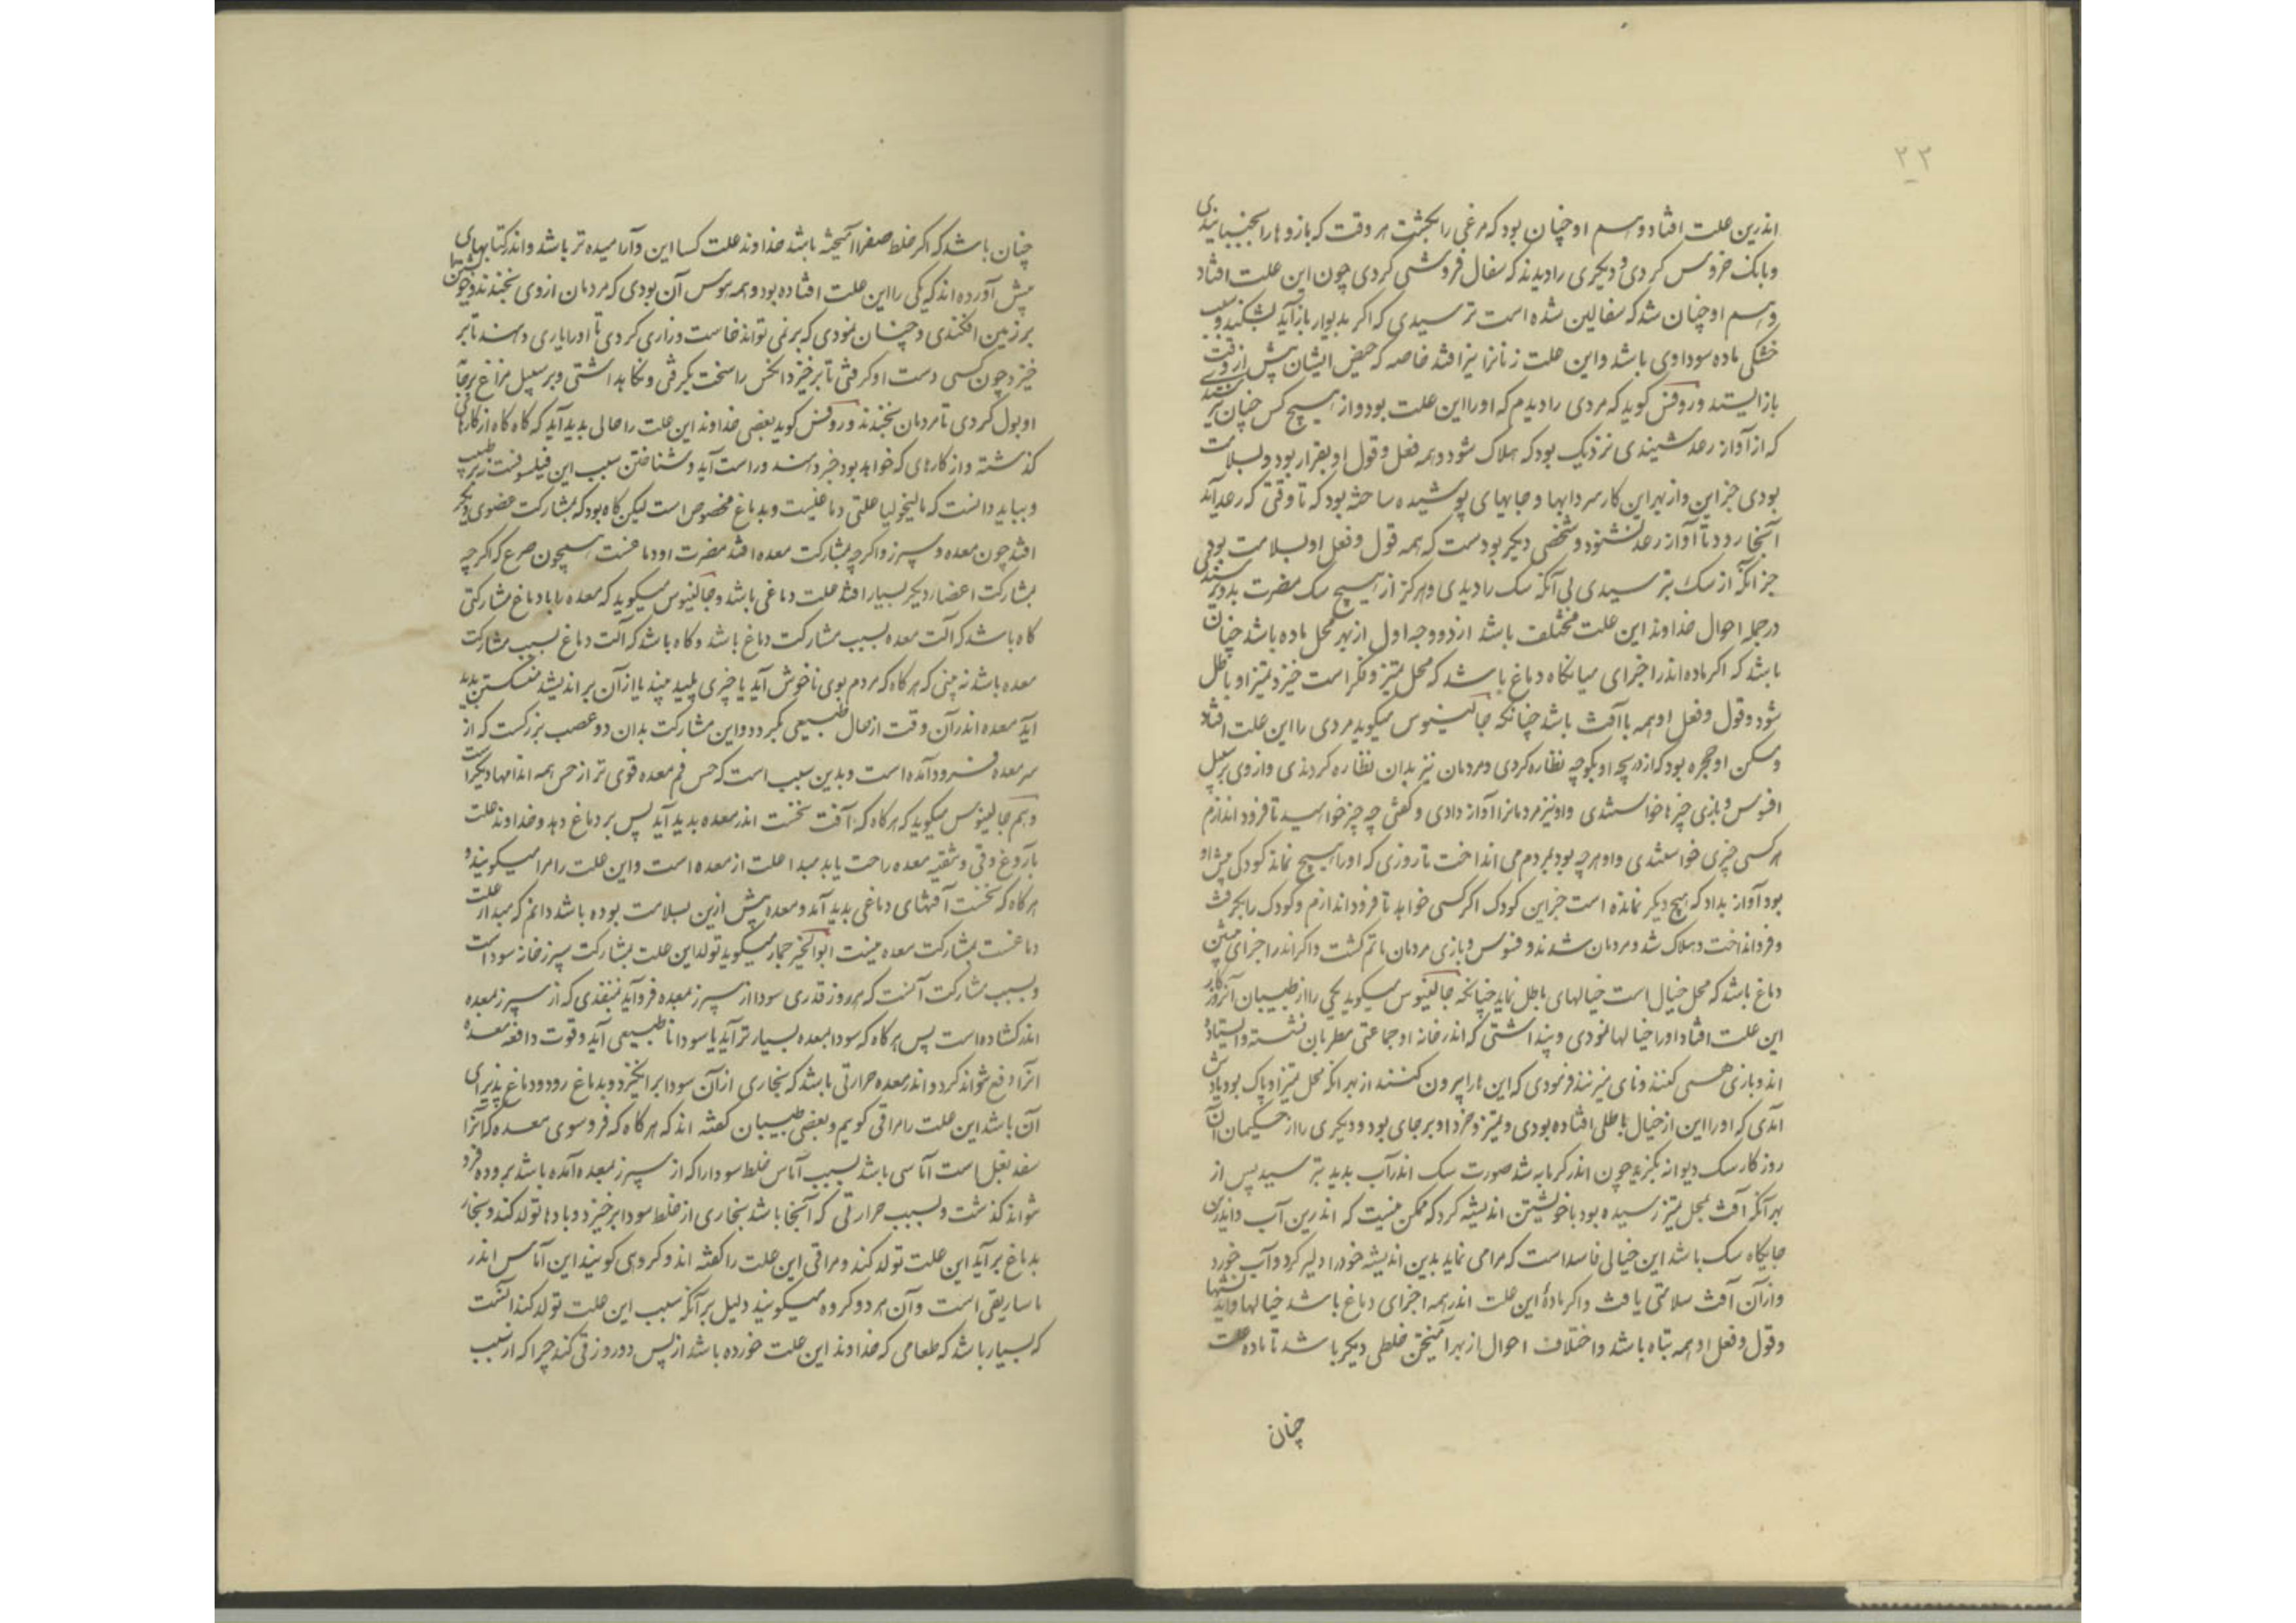 ۲۳
اندرین علت افتاد و وسم او چنان بود که مرغی را بکشت هر وقت که بازوها را بجنبانیدی
و بانک خروس کردی و دیکری را دیدند که سفال فروشی کردی چون این علت افتاد
وسم او چنان شد که سفالین شده است ترسیدی که اکر بدیوار بازآید بشکند و سبب
خشکی ماده سوداوی باشد و این علت زنانرا نیز افتد خاصه که حیض ایشان پیش از وقت
بازایستد و روفس کوید که مردی را دیدم که او را این علت بود و از هیچ کس چنان
که از آواز رعد شنیدی نزدیک بود که هلاک شود و همه فعل و قول او بقرار بود و بسلامت
بودی جز این و از بهر این کار سردابها و جایهای پوشیده ساخته بود که تا وقتی که رعد آید
آنجا رود تا آواز رعد نشنود و شخصی دیکر بودست که همه قول و فعل او بسلامت بودی
جز آنکه از سک بترسیدی بی آنکه سک را دیدی و هرکز از هیچ سک مضرت بدو
در جمله احوال خداوند این علت مختلف باشد از دو وجه اول از بهر محل ماده باشد چنان
باشد که اکر ماده اندر اجزای میانکاه دماغ باشد که محل تمیز و فکر است خیزد تمیز او باطل
شود و قول و فعل او همه باآفت باشد چنانکه جالینوس میکوید مردی را این علت افتاد
و مسکن او حجره بود که از دریچه او بکوچه نظاره کردی و مردمان نیز بدان نظاره کردندی و از وی بر سبیل
افسوس و بازی چیزها خواستندی و او نیز مردمانرا آواز دادی و کفتی چه چیز خواهید تا فرود اندازم
هر کسی چیزی خواستندی و او هر چه بود بمردم می انداخت تا روزی که او را هیچ نماند کودکی پیش او
بود آواز بداد که هیچ دیکر نمانده است جز این کودک اکر کسی خواهد تا فرود اندازم و کودک را بکرفت
و فرو انداخت و هلاک شد و مردمان شدند و فسوس و بازی مردمان ماتم کشت و اکر اندر اجزای پیشن
دماغ باشد که محل خیال است خیالهای باطل نماید چنانکه جالینوس میکوید یکی را از طبیبان آنروزکار
این علت افتاد او را خیالها نمودی و پنداشتی که اندر خانه او جماعتی مطربان نشسته و ایستاده
اند و بازی همی کنند و نای میزنند فرمودی که این ها را بیرون کنند از بهر آنکه محل تمیز او پاک بود یادش
آمدی که او را این از خیال باطلی افتاده بودی و تمیز و خرد او بر جای بود و دیکری را از حکیمان آن
روزکار سک دیوانه بکزید چون اندر کرمابه شد صورت سک اندر آب بدید بترسید پس از
بهر آنکه آفت بمحل تمیز نرسیده بود با خویشتن اندیشه کرد که ممکن نیست که اندرین آب و اندرین
جایکاه سک باشد این خیالی فاسد است که مرا می نماید بدین اندیشه خود را دلیر کرد و آب خورد
و از آن آفت سلامتی یافت و اکر مادهٔ این علت اندر همه اجزای دماغ باشد خیالها و اندیشها
و قول و فعل او همه تباه باشد و اختلاف احوال از بهر آمیختن خلطی دیکر باشد تا ماده علت
چنان
چنان باشد که اکر خلط صفرا آمیخته باشد خداوند علت کسا این و آرامیده تر باشد و اندر کتابهای
پیش آورده اند که یکی را این علت افتاده بود و همه هوس آن بودی که مردمان از وی بخندند و خویشتن را
بر زمین افکندی و چنان نمودی که برنمی تواند خاست و زاری کردی تا او را یاری دهند تا بر
خیزد چون کسی دست او کرفتی تا برخیزد آنکس را سخت بکرفتی و نکاه بداشتی و بر سبیل مزاح بر جامه
او بول کردی تا مردمان بخندند و روفس کوید بعضی خداوند این علت را حالی بدید آید که کاه کاه از کارهای
کذشته و از کارهای که خواهد بود خبر دهند و راست آید و شناختن سبب این فیلسوفست نه بر طبیب
و بباید دانست که مالیخولیا علتی دماغیست و بدماغ مخصوص است لیکن کاه بود که بمشارکت عضوی دیکر
افتد چون معده و سپرز و اکر چه بمشارکت معده افتد مضرت او دماغیست همچون صرع که اکر چه
بمشارکت اعضاء دیکر بسیار افتد علت دماغی باشد و جالینوس میکوید که معده را با دماغ مشارکتی
کاه باشد که آلت معده بسبب مشارکت دماغ باشد و کاه باشد که آلت دماغ بسبب مشارکت
معده باشد نه بینی که هرکاه که مردم بوی ناخوش آید یا چیزی پلید بیند یا از آن براندیشد منش کشتن بدید
آید معده اندر آن وقت از حال طبیعی بکردد و این مشارکت بدان دو عصب بزرکست که از
سر معده فرود آمده است و بدین سبب است که حس فم معده قوی تر از حس همه اندامها دیکر است
و هم جالینوس میکوید که هرکاه که آفت نخست اندر معده بدید آید پس بر دماغ دهد و خداوند علت
بآروغ و قی و تنقیه معده راحت یابد مبدا علت از معده است و این علت را مرا میکویند و
هرکاه که نخست آفتهای دماغی بدید آید و معده پیش ازین بسلامت بوده باشد دانم که مبدا علت
دماغست بمشارکت معده نیست ابوالخیر خمار میکوید تولد این علت بمشارکت سپرز خانه سودا است
و بسبب مشارکت آنست که هر روز قدری سودا از سپرز بمعده فرو آید بمنفذی که از سپرز بمعده
اندر کشاده است پس هرکاه که سودا بمعده بسیار تر آید یا سودا نا طبیعی آید و قوت دافعه معده
آنرا دفع نتواند کرد و اندر معده حرارتی باشد که بخاری از آن سودا برانکیزد و بدماغ رود و دماغ پذیرای
آن باشد این علت را مراقی کویم و بعضی طبیبان کفته اند که هرکاه که فروسوی معده که آنرا
سفد بغل است آماسی باشد بسبب آماس خلط سودا را که از سپرز بمعده آمده باشد بروده فرو
نتواند کذشت و بسبب حرارتی که آنجا باشد بخاری از خلط سودا برخیزد و بادها تولد کند و بخار
بدماغ برآید این علت تولد کند و مراقی این علت را کفته اند و کروهی کویند این آماس اندر
ماساریقی است و آن هر دو کروه میکویند دلیل بر آنکه سبب این علت تولد کند آنست
که بسیار باشد که طعامی که خداوند این علت خورده باشد از پس دو روز قی کند چرا که از سبب